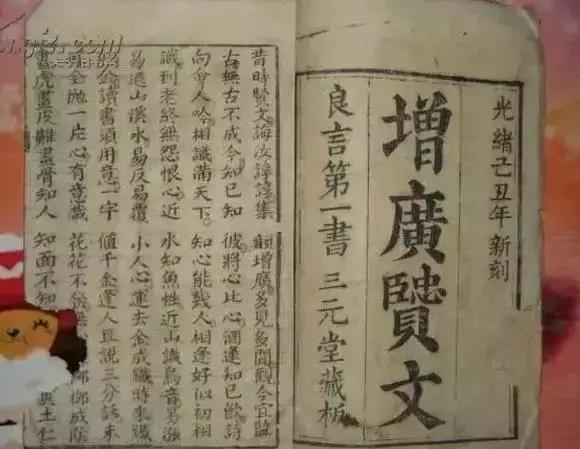 光緒己丑年新刻
增廣賢文
良言第一書 三元堂藏板
昔時賢文誨汝諄諄集韻增廣多見多聞觀今宜鑑
古無古不成今知已知彼將心比心酒逢知已飲詩
向會人吟相識滿天下知心能幾人相逢好似初相
識到老終無怨恨心近水知魚性近山識鳥音易漲
易退山溪水易反易覆小人心運去金成鐵時來鐵
似金讀書須用意一字值千金逢人且說三分話未
可全拋一片心有意栽花花不發無柳成陰
畫虎畫皮難畫骨知人知面不知土仁